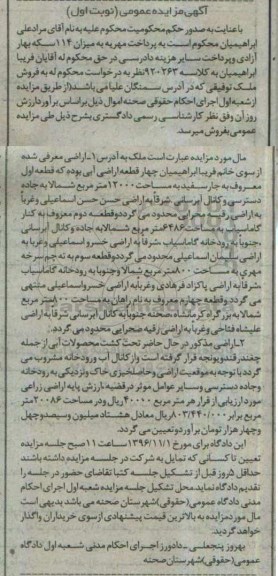 آگهی مزایده عمومی (نوبت اول)
با عنایت به صدور حکم محکومیت محکوم علیه به نام آقای مرادعلی
ابراهیمیان محکوم است به پرداخت مهریه به میزان ۱۱۴ سکه بهار
آزادی و پرداخت سایر هزینه دادرسی در حق محکوم له آقایان فریبا
ابراهیمیان به کلاسه ۹۲۰۲۶۳ نظر به درخواست محکوم له به فروش
ملک توقیفی که در آدرس سمنگان علیا می باشد (از طریق مزایده
از شعبه اول اجرای احکام حقوقی صحنه اموال ذیل براساس برآورد ارزش
روز آن وفق نظر کارشناسی رسمی دادگستری بشرح ذیل طی مزایده
عمومی بفروش میرسد.
مال مورد مزایده عبارت است ملک به آدرس ۱- اراضی معرفی شده
از سوی خانم فریبا ابراهیمیان چهار قطعه اراضی آبی بوده که قطعه اول
معروف به جار سفید به مساحت ۱۲۰۰۰ متر مربع شمالا به جاده
دسترسی و کانال آبرسانی شرقا به اراضی حسن حسن اسماعیلی و غربا
به اراضی رقیه صحرایی محدود می گردد و قطعه دوم معروف به کنار
گاماسیاب به مساحت ۶۴۸۶ متر مربع شمالا به جاده و کانال آبرسانی
،جنوبا به رودخانه گاماسیاب ،شرقا به اراضی خسرو اسماعیلی و غربا به
اراضی سلیمان اسماعیلی محدود می گردد و قطعه سوم به نه چم سرخه
مهری به مساحت ۸۰۰ متر مربع شمالا و جنوبا به رودخانه گاماسیاب
،شرقا به اراضی پاکزاد فرهادی و غربا به اراضی خسرو اسماعیلی منتهی
می گردد و قطعه چهارم معروف به نام راهان به مساحت ۸۰۰ متر مربع
شمالا به بزرگراه کرمانشاه صحنه جنوبا به کانال آبرسانی شرقا به اراضی
علیشاه فتاحی و غربا به اراضی رقیه صحرایی محدود می گردد.
۲- اراضی مذکور در حال حاضر تحت کشت محصولات آبی از جمله
چغندر قند و یونجه قرار گرفته است و از کانال آب رودخانه مشروب می
گردد با توجه به موقعیت اراضی و حاصلخیزی خاک و نزدیکی به رودخانه
و جاده دسترسی و سایر عوامل موثر در قضیه، ارزش پایه اراضی زراعی
مورد ارزیابی از قرار هر متر مربع ۴۰۰۰۰ ریال و در مساحت ۲۰۰۸۶ متر
مربع برابر ۸۰۳/۴۴۰/۰۰۰ ریال معادل هشتاد میلیون و سیصد و چهل
و چهار هزار تومان برآورد و تعیین می گردد.
این دادگاه برای مورخ ۱۳۹۶/۱۱/۱ ساعت ۱۱ صبح جلسه مزایده
تعیین تا کسانی که تمایل به شرکت در جلسه مزایده داشته باشند
حداقل ۵ روز قبل از تشکیل جلسه کتبا تقاضای حضور در جلسه را
تقدیم دادگاه نماید. محل تشکیل جلسه مزایده شعبه اول اجرای احکام
مدنی دادگاه عمومی (حقوقی) شهرستان صحنه می باشد بدیهی است
مال مورد مزایده به بالاترین قیمت پیشنهادی از سوی خریداران واگذار
خواهد گردید.
بهروز پنجعلی - دادورز اجرای احکام مدنی شعبه اول دادگاه
عمومی (حقوقی) شهرستان صحنه